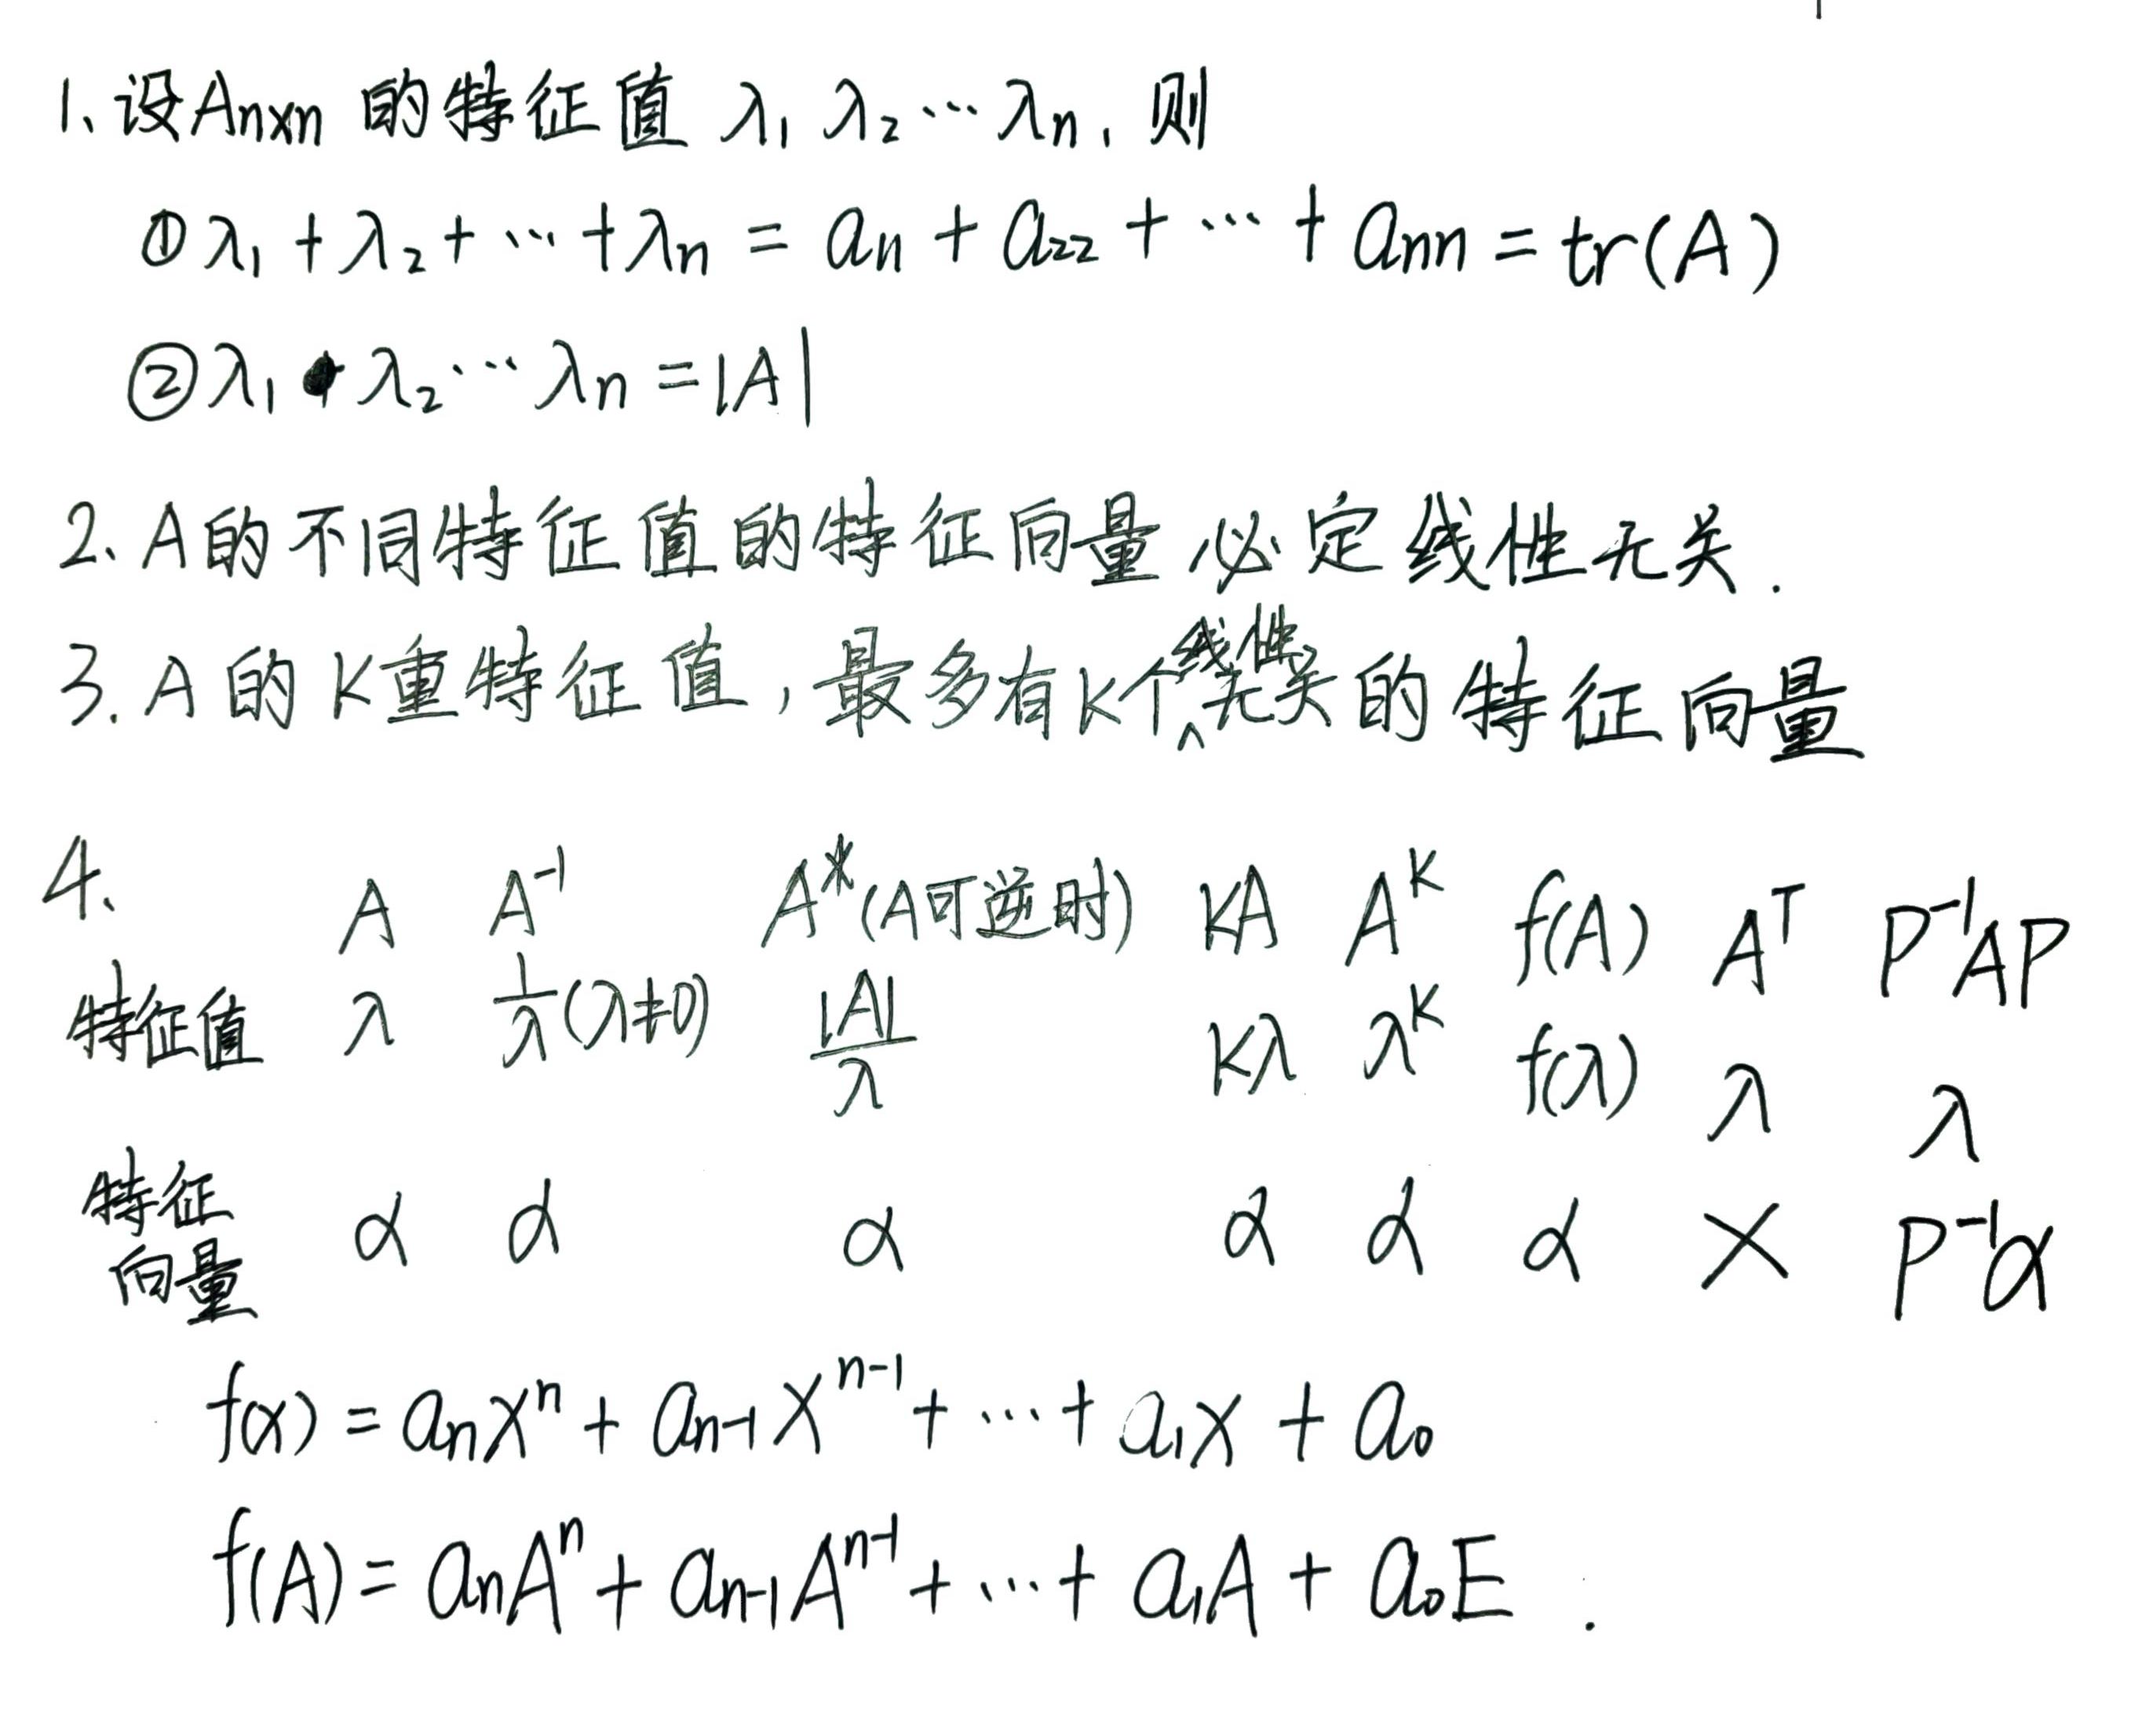 1、设Aₙₓₙ 的特征值 λ₁ λ₂ ⋯ λₙ, 则
① λ₁ + λ₂ + ⋯ + λₙ = a₁₁ + a₂₂ + ⋯ + aₙₙ = tr(A)
② λ₁ • λ₂ ⋯ λₙ = |A|
2、A的不同特征值的特征向量必定线性无关.
3. A的K重特征值, 最多有K个线性无关的特征向量
4、 A A⁻¹ A*(A可逆时) KA Aᴷ f(A) Aᵀ P⁻¹AP
特征值 λ 1/λ(λ≠0) |A|/λ Kλ λᴷ f(λ) λ λ
特征
向量 α α α α α α × P⁻¹α
f(x) = aₙxⁿ + aₙ₋₁xⁿ⁻¹ + ⋯ + a₁x + a₀
f(A) = aₙAⁿ + aₙ₋₁Aⁿ⁻¹ + ⋯ + a₁A + a₀E .